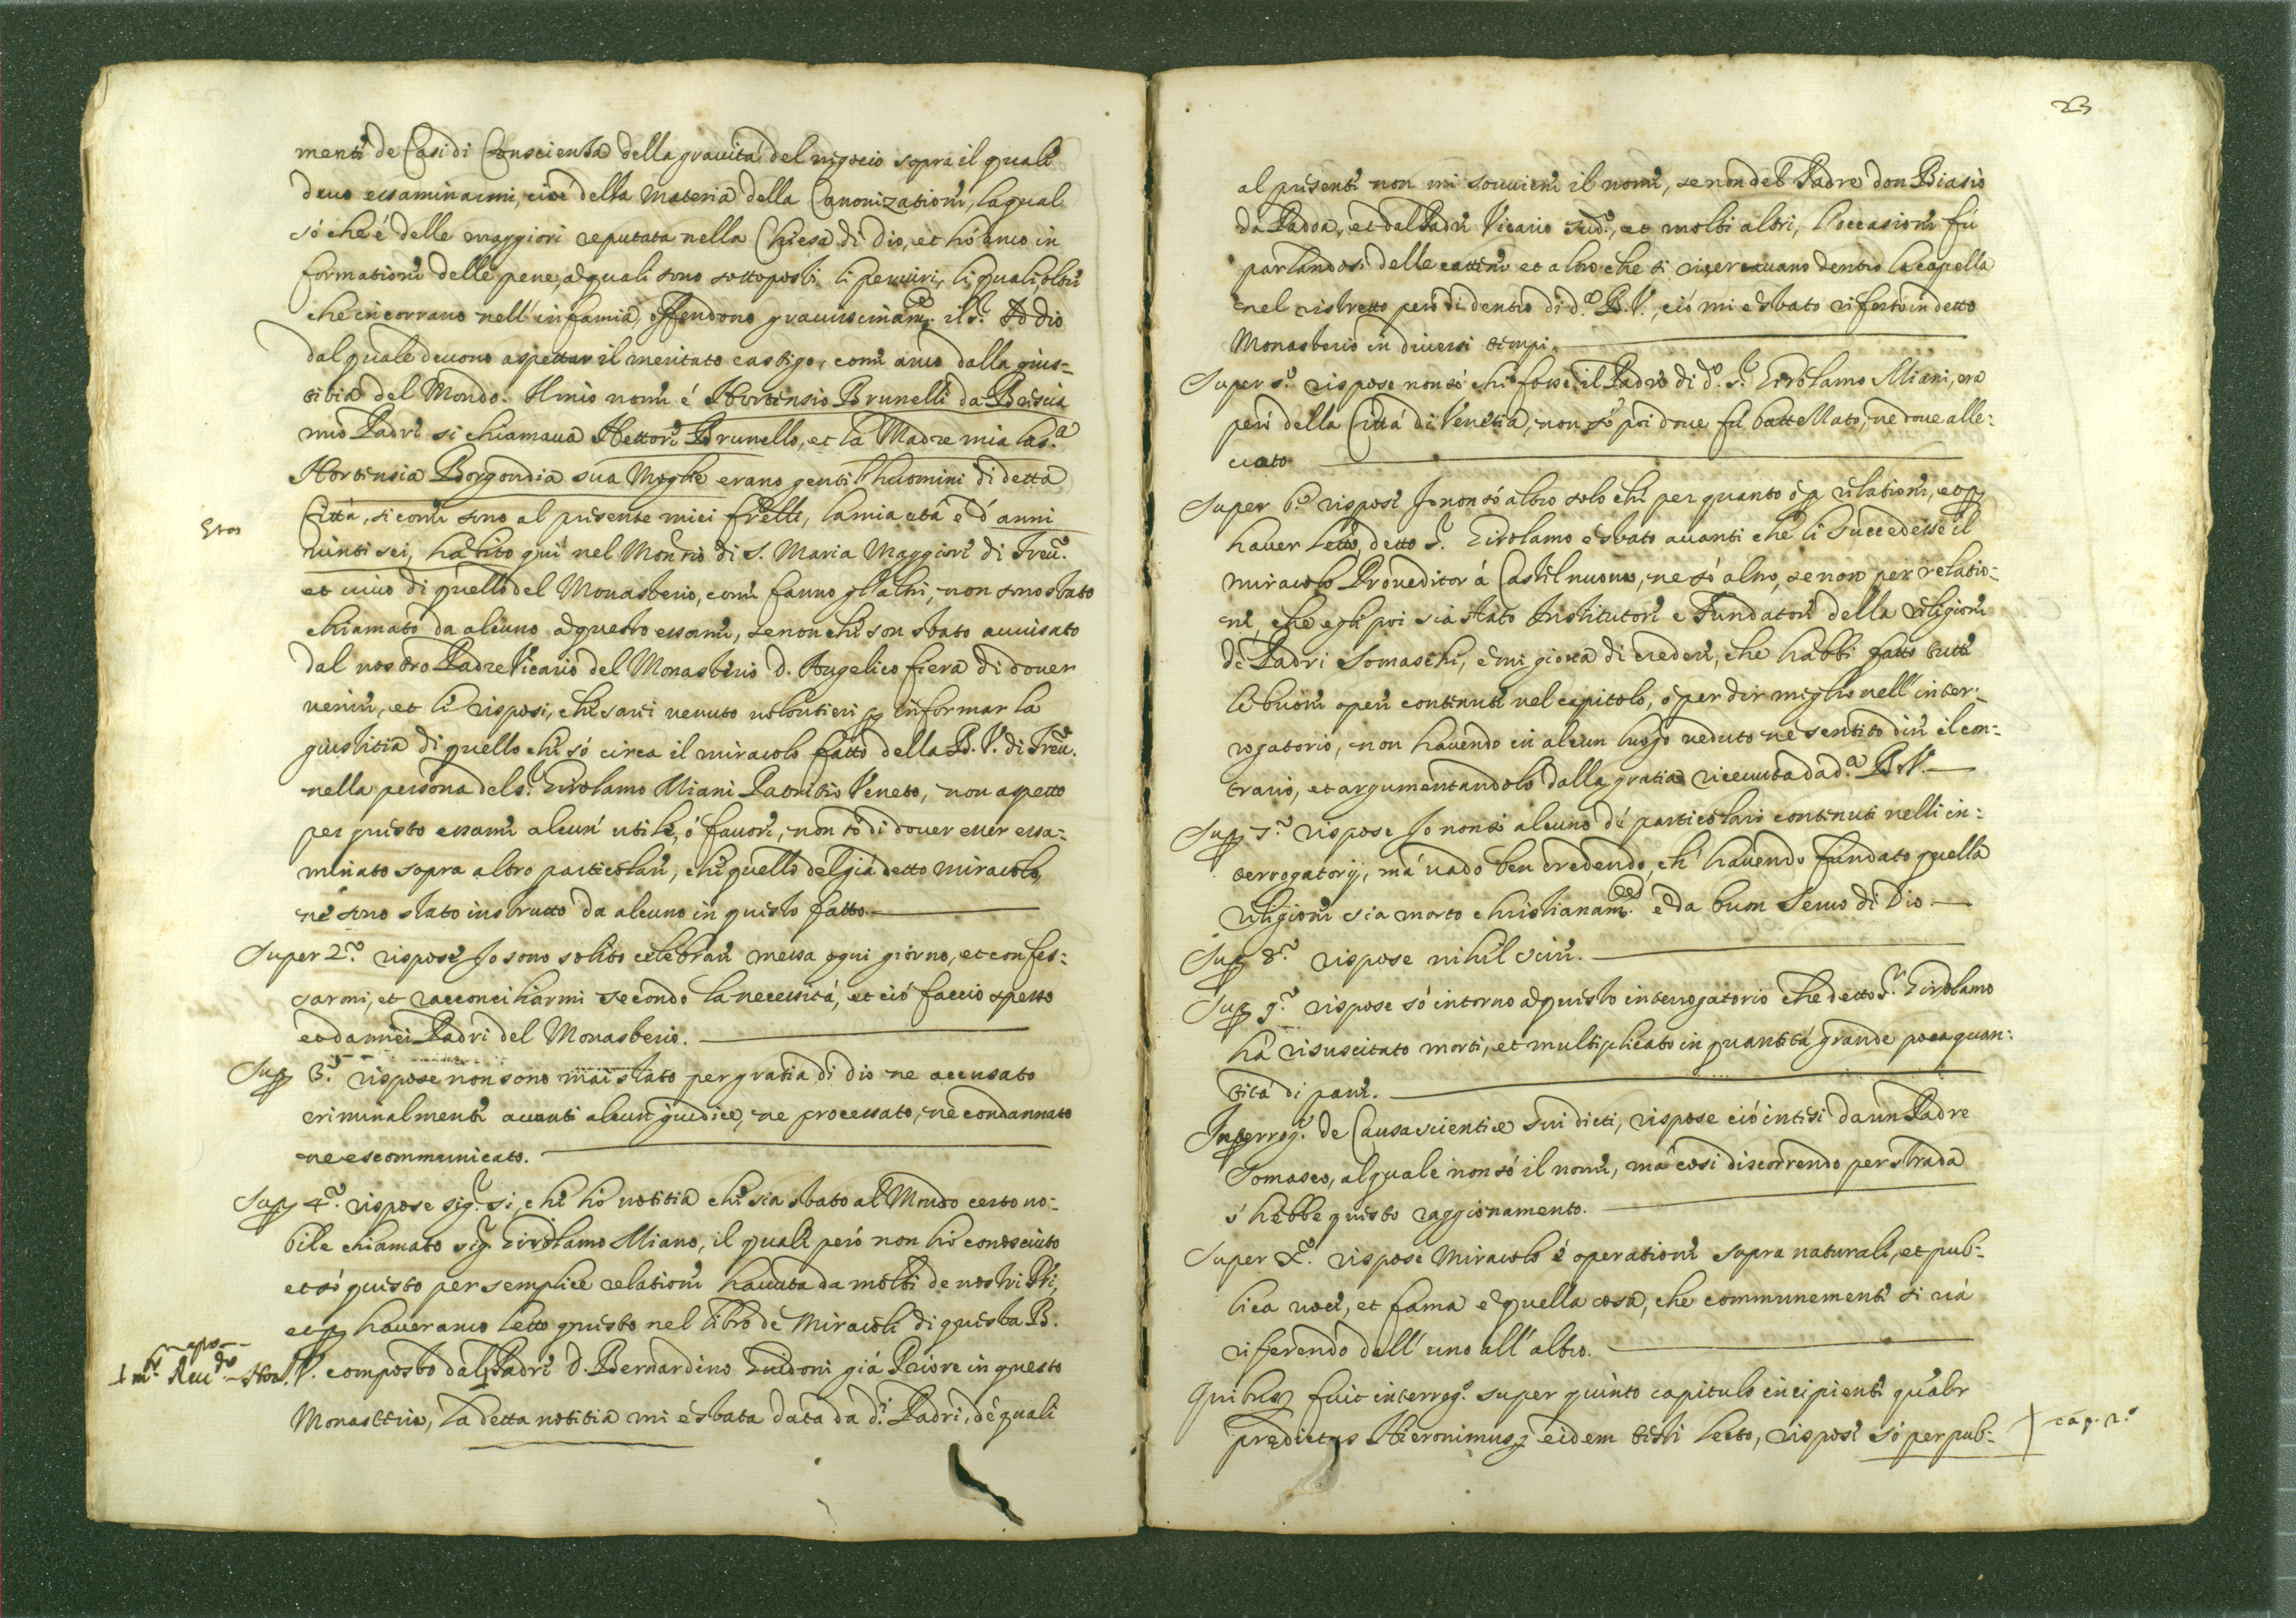 menti de Casi di Conscienza della gravità del negocio sopra il quale
devo essaminarmi, cioè della materia della Canonizatione, la qual
sò che è delle maggiori reputata nella Chiesa di Dio, et hò anco in
formatione delle pene, à quali sono sottoposti li periuri, li quali oltre
che incorrano nell'infamia, offendono gravissimam.te il S.r Iddio
dal quale devono aspettar il meritato castigo, come anco dalla gius=
titia del Mondo. Il mio nome é Hortensio Brunelli da Brescia
mio Padre si chiamava Hettore Brunello, et la Madre mia la S.a
Hortensia Borgondia sua Moglie erano gentil'huomini di detta
Città, si come sono al presente miei frelli, la mia età è d'anni
Etas
vinti sei, habito qui nel Mon.rio di S. Maria Maggiore di Trev.o
et vivo di quello del Monasterio, come fanno gl'altri, non sono stato
chiamato da alcuno à questo essame, se non che son stato avvisato
dal nostro Padre Vicario del Monasterio D. Angelico fiera di dover
venire, et li risposi, che sarei venuto volontieri p informar la
giustitia di quello che sò circa il miracolo fatto della B. V. di Trev.o
nella persona del S.r Girolamo Miani Patritio Veneto, non aspetto
per questo essame alcun' utile, ò favore, non sò di dover esser essa=
minato sopra altro particolare, che quello del già detto miracolo,
nè sono stato instrutto da alcuno in questo fatto.
Super 2.o rispose Io sono solito celebrare messa ogni giorno, et confes=
sarmi, et racconciliarmi secondo la necessità, et ciò faccio spesso
et da miei Padri del Monasterio.
Sup 3.o rispose non sono mai stato per gratia di dio ne accusato
criminalmente avanti alcun giudice, ne processato, nè condannato
ne escommunicato.
Sup 4.o rispose sig.r si, che hò notitia che sia stato al Mondo certo no=
bile chiamato sig.r Girolamo Miano, il quale però non hò conosciuto
et sò questo per semplice relatione havuta da molti de nostri Pri,
et p haver anco letto questo nel libro de Miracoli di questa B.
V. composto dal Padre D. Bernardino Guidoni già Priore in questo
Monasterio, la detta notitia mi è stata data da d.i Padri, dé quali
23
al presente non mi sovviene il nome, se non del Padre don Biasio
da Padoa, et dal Padre Vicario sud.o, et molti altri, l'occasione fù
parlandosi delle cattene et altro che si riserravano dentro la capella
nel ristretto però di dentro di d.a B. V., ciò mi è stato riferto in detto
Monasterio in diversi tempi.
Super 5.o rispose non sò chi fosse il Padre di d.o S.r Girolamo Miani, era
però della Città di Venetia, non sò poi dove fù battezzato, ne dove alle=
vato
Super 6.o rispose Io non sò altro solo che per quanto ò p relatione, et p
haver letto, detto S.r Girolamo è stato avanti che li succedesse il
miracolo Proveditor à Castel nuovo, ne sò altro, se non per relatio=
ne, che egli poi sia stato Institutore e Fundatore della religione
dé Padri Somaschi, è mi giova di credere, che habbi fatto tutte
le buone opere contenute nel capitolo, ò per dir meglio nell'inter=
rogatorio, non havendo in alcun luogo veduto ne sentito dire il con=
trario, et argumentandolo dalla gratia ricevuta da d.a B. V.
Sup 7.o rispose Io non sò alcuno dé particolari contenuti nelli in=
terrogatorij, mà vado ben credendo, ch' havendo fundato quella
religione sia morto christianam.te è da buon Servo di Dio
Sup 8.o rispose nihil scire.
Sup 9.o rispose sò intorno à questo interrogatorio che detto S.r Girolamo
hà risuscitato morti, et multiplicato in quantità grande poca quan=
tità di pane.
Interrog.s de Causa scientiae sui dicti, rispose ciò intesi da un Padre
Somasco, al quale non sò il nome, mà così discorrendo per strada
s'hebbe questo raggionamento.
Super X.o rispose Miracolo é operatione sopra naturale, et pub=
lica voce, et fama è quella cosa, che communemente si và
riferendo dall'uno all'altro.
Quibus fuit interrog.s super quinto capitulo incipiente qualr
praedictus Hieronimus eidem testi lecto, rispose sò per pub=
cap. 2.o